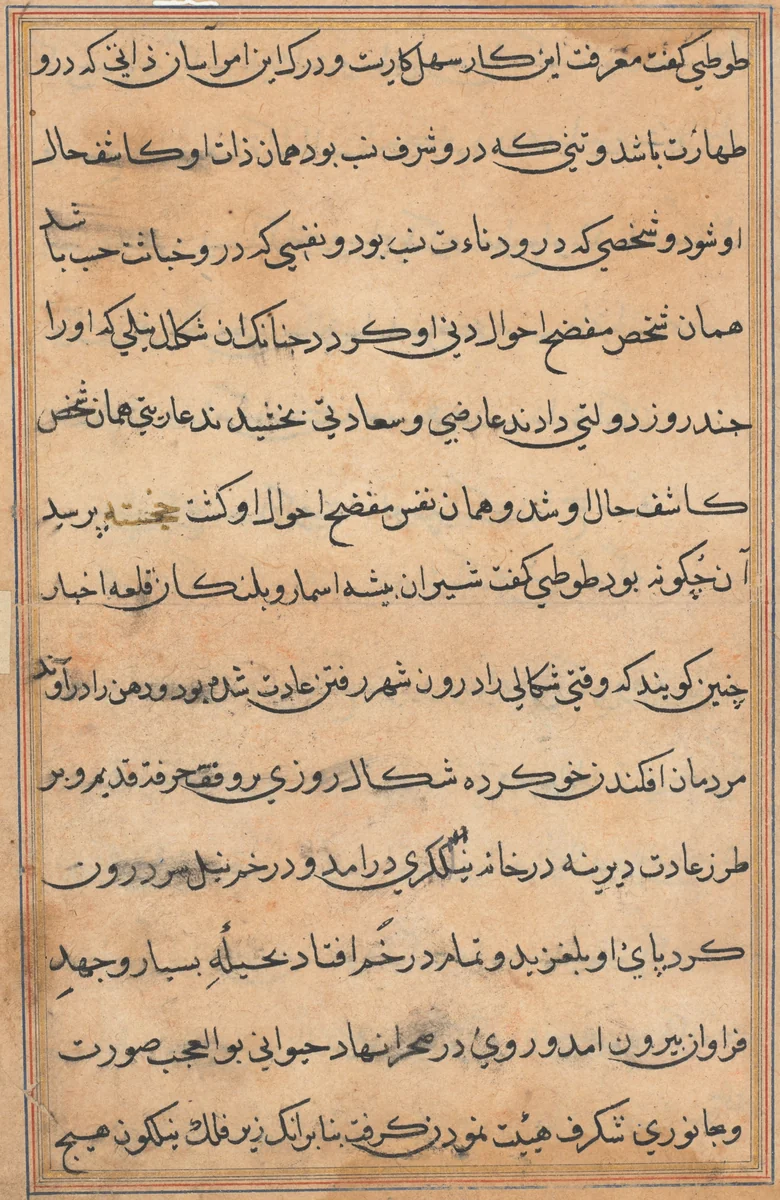 طوطی گفت معرفت این کار سهل کاریت و درک این امر آسان ذاتی که درو
طهارت باشد و تنی که درو شرف نسب بود همان ذات او کاشف حال
او شود و شخصی که درو دناءت نسب بود و نفسی که درو خباثت حسب باشد
همان شخص مفضح احوال دنی او کردد جنانک ان شکال نیلی که او را
جند روز دولتی دادند عارضی و سعادتی بخشیدند عاریتی همان شخص
کاشف حال او شد و همان نفس مفضح احوال او کشت خجسته پرسید
آن چگونه بود طوطی کفت شیران بیشه اسمار و بلنکان قلعه اخبار
چنین کویند که وقتی شکالی را درون شهر رفتن عادت شده بود و دهن را در آوند
مردمان افکندن خو کرده شکال روزی بر وفق حرفة قدیم و بر
طرز عادت دیرینه در خانه نیلکری درامد و در خم نیل سر درون
کرد پای او بلغزید و تمام در خُم افتاد بحیلهٔ بسیار و جهدِ
فراوان بیرون امد و روی در صحرا نهاد حیوانی بوالعجب صورت
و جانوری شکرف هیئت نمودن کرفت بنا برانک زیر فلک نیلکون هیج